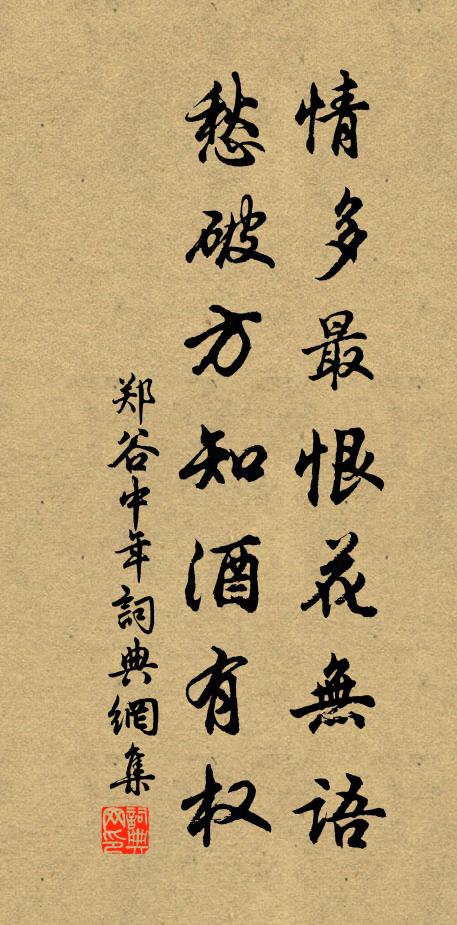 情多最恨花無語
愁破方知酒有权
郑谷中年詞典網集
詞典网印